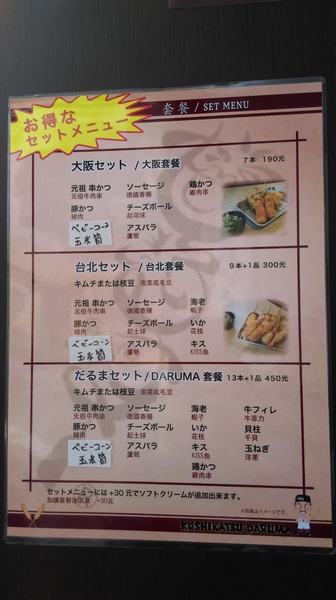 お得な
セットメニュー
套餐 / SET MENU
大阪セット /大阪套餐 7本 190元
元祖 串かつ ソーセージ 鶏かつ
元祖牛肉串 德國香腸 雞肉串
豚かつ チーズボール
豬肉 起司球
ベビーコーン アスパラ
玉米筍 蘆筍
台北セット /台北套餐 9本+1品 300元
キムチまたは枝豆 泡菜或毛豆
元祖 串かつ ソーセージ 海老
元祖牛肉串 德國香腸 蝦子
豚かつ チーズボール いか
豬肉 起士球 花枝
ベビーコーン アスパラ キス
玉米筍 蘆筍 KISS魚
だるまセット/DARUMA 套餐 13本+1品 450元
キムチまたは枝豆 泡菜或毛豆
元祖 串かつ ソーセージ 海老 牛フィレ
元祖牛肉串 德國香腸 蝦子 牛菲力
豚かつ チーズボール いか 貝柱
豬肉 起士球 花枝 干貝
ベビーコーン アスパラ キス 玉ねぎ
玉米筍 蘆筍 KISS魚 洋蔥
鶏かつ
雞肉串
セットメニューには+30元でソフトクリームが追加出来ます。
加購套餐冰淇淋 +30元
※写真はイメージです。
KUSHIKATSU DARUMA